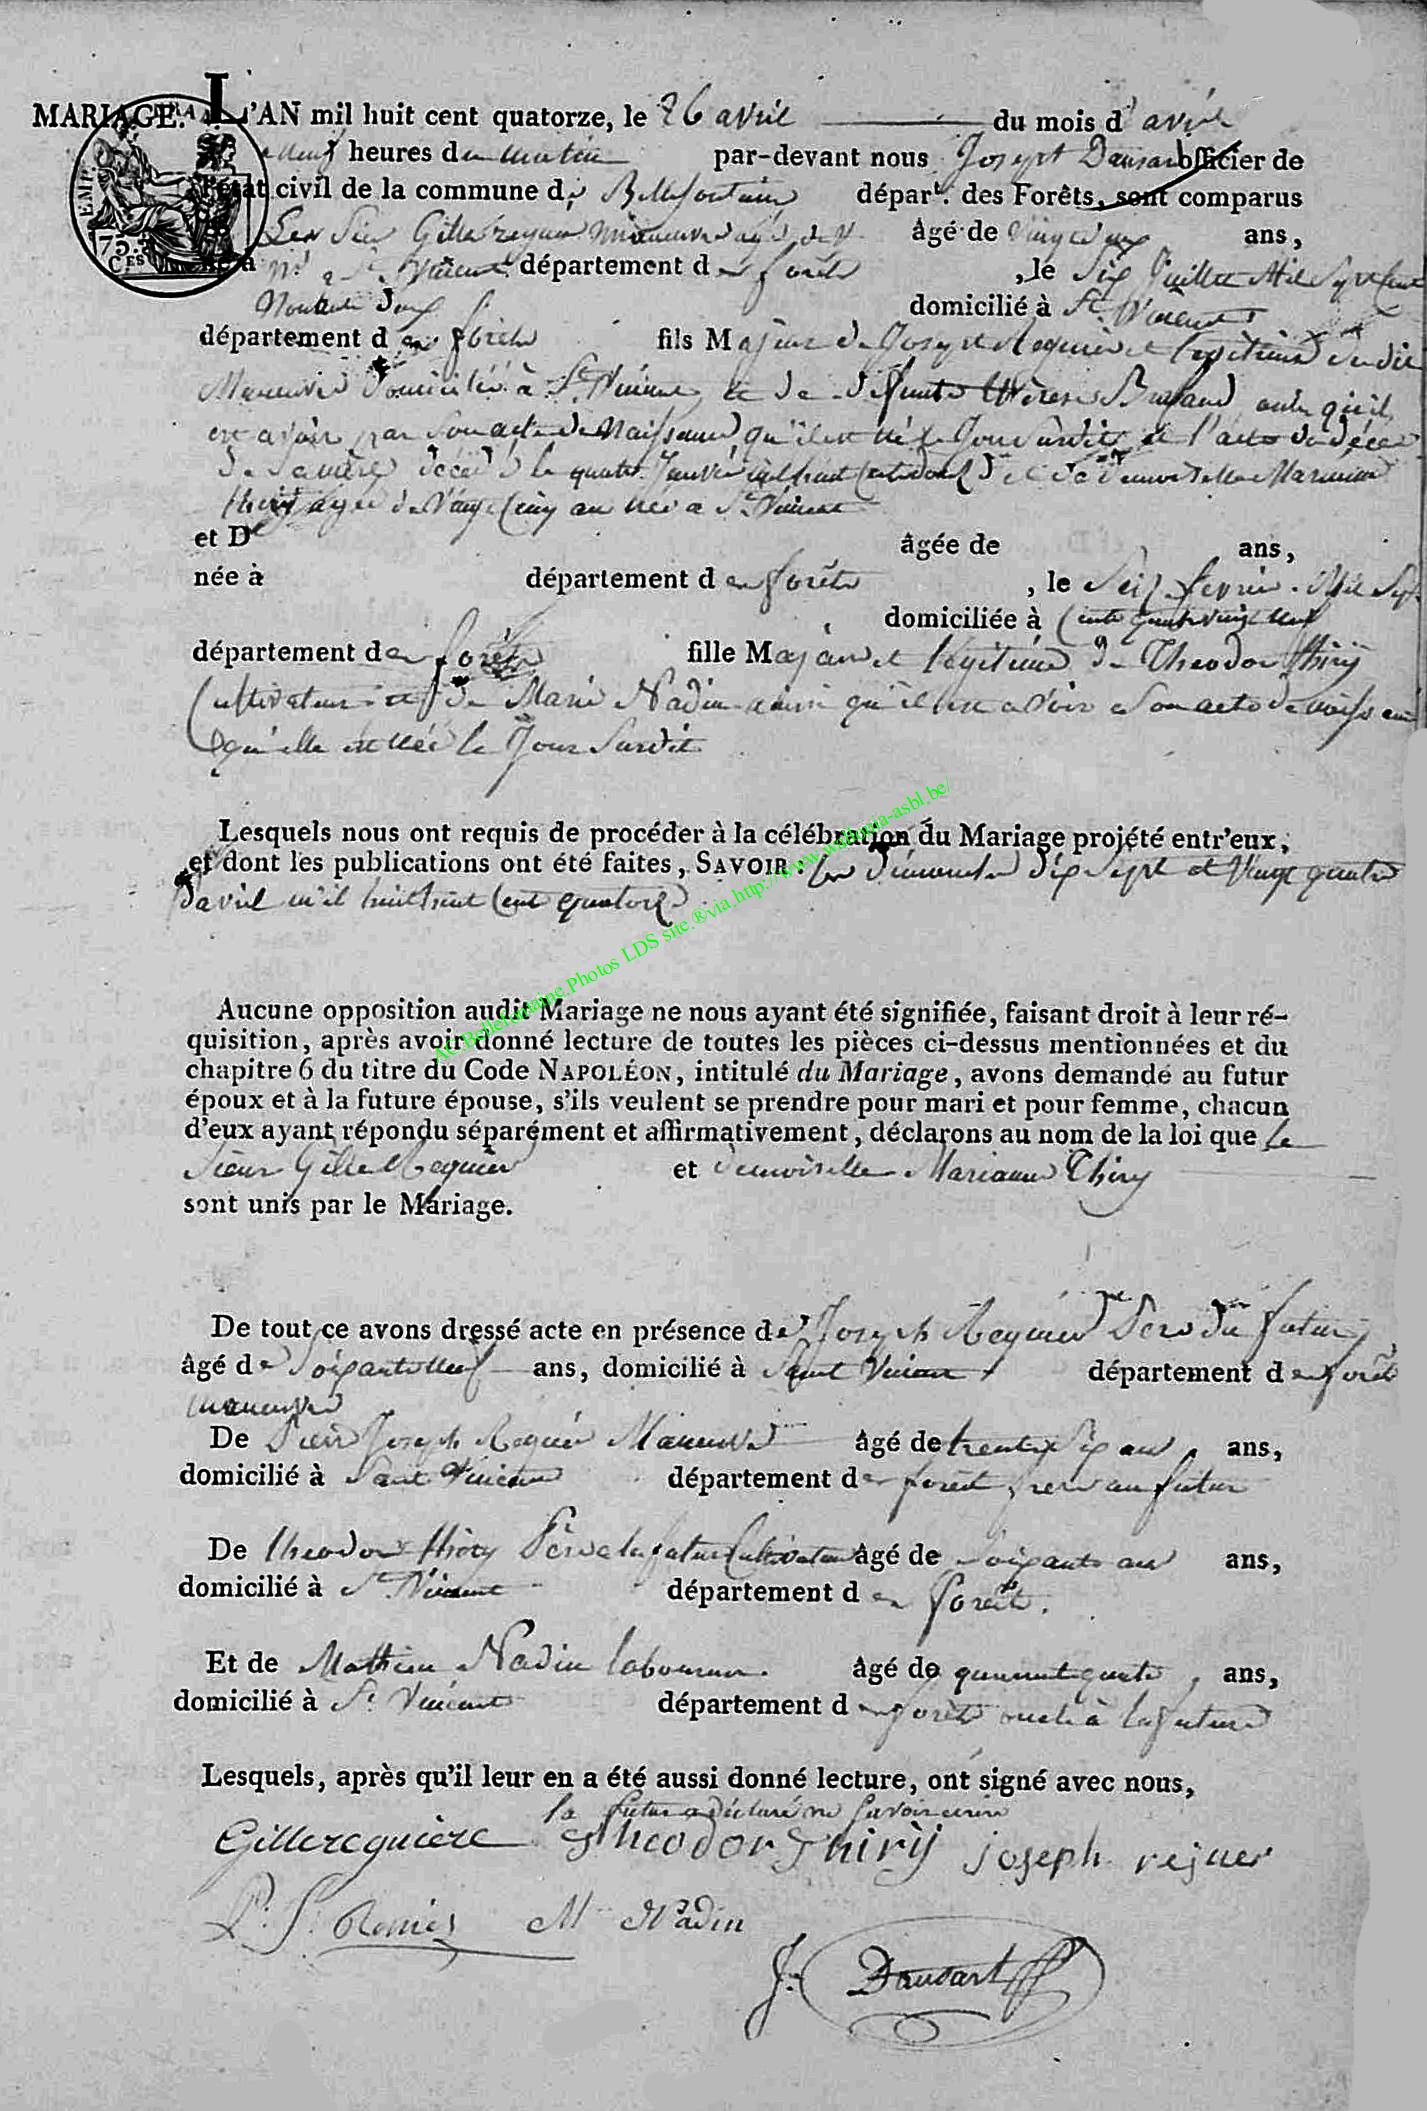 MARIAGE. L'AN mil huit cent quatorze, le 26 avril du mois d'avril
neuf heures du matin par-devant nous Joseph Dausart officier de
l'état civil de la commune de Bellefontaine départ. des Forêts, sont comparus
Le Sieur Gille âgé de vingt deux ans,
né à St. Vincent département des forêts, le Six Juillet Mil Sept Cent
Nonante deux domicilié à St Vincent
département des forêts fils Majeur de Joseph Requier et légitime
Maneuvre domicilié à St. Vincent et de défunte Thérese
par son acte de Naissance qu'il est né le Jour Surdit et l'acte de décès
de sa mère décédé le quatre Janvier mil huit Cent et de demoiselle Marianne
thiry agée de Vingt Cinq an née a St. Vincent
et De âgée de ans,
née à département des forêts, le Seiz fevrier Mil Sept
domiciliée à Cente quatre vingt neuf
département des forêts fille Majeure et légitime de Theodor thiry
Cultivateur et de Marie Nadin ainsi qu'il est a Voir a Son acte de naissance
qu'elle est née le Jour Surdit
Lesquels nous ont requis de procéder à la célébration du Mariage projété entr'eux,
et dont les publications ont été faites, SAVOIR: les dimanches dix Sept et Vingt quatre
d'avril mil huit Cent quatorze
Aucune opposition audit Mariage ne nous ayant été signifiée, faisant droit à leur ré-
quisition, après avoir donné lecture de toutes les pièces ci-dessus mentionnées et du
chapitre 6 du titre du Code NAPOLÉON, intitulé du Mariage, avons demandé au futur
époux et à la future épouse, s'ils veulent se prendre pour mari et pour femme, chacun
d'eux ayant répondu séparément et affirmativement, déclarons au nom de la loi que le
Sieur Gille Requier et demoiselle Marianne Thiry
sont unis par le Mariage.
De tout ce avons dressé acte en présence de Joseph Requier Pere du futur
âgé de Soixante neuf ans, domicilié à Saint Vincent département des forêts
maneuvre
De Pierre Joseph Requier Maneuvre âgé de trente Six an, ans,
domicilié à Saint Vincent département des forêts frere au futur
De theodor thiry Père de la future Cultivateur âgé de Soixante an ans,
domicilié à St. Vincent département des forêts.
Et de Mathieu Nadin laboureur. âgé de quarante quatre, ans,
domicilié à St. Vincent département des forêts oncle à la future
Lesquels, après qu'il leur en a été aussi donné lecture, ont signé avec nous,
la future a déclaré ne Savoir ecrire
Gillerequiere theodor thiry joseph rejuer
P: J: M Nadin
J: Dausart
EMP.
75 CES
AC.Bellefontaine.Photos LDS site.®via.http://www.wallonia-asbl.be/